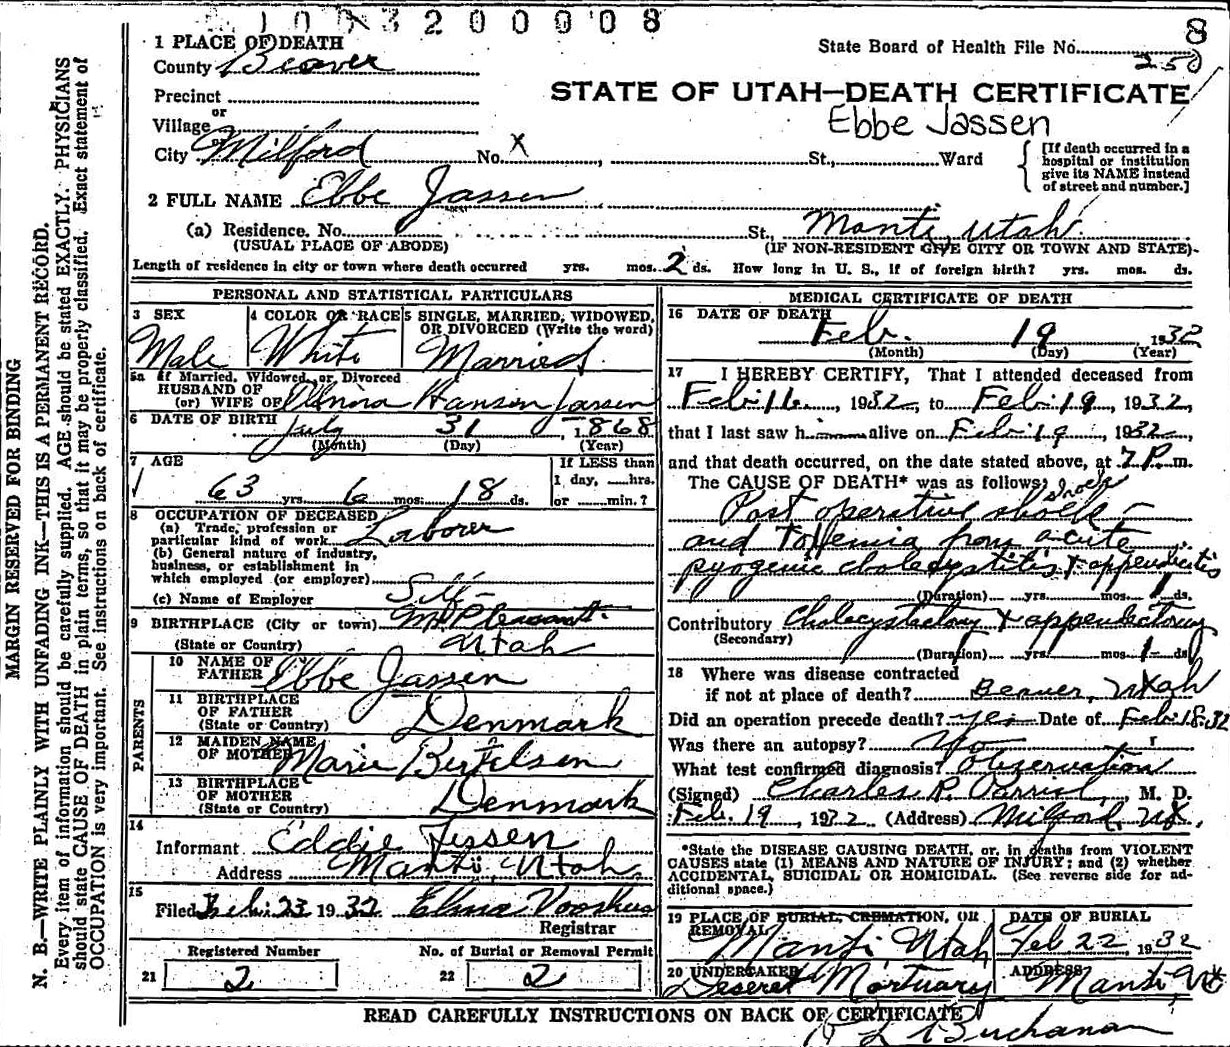 1 0 0 3 2 0 0 0 0 8
8
State Board of Health File No. 250
1 PLACE OF DEATH
County Beaver
STATE OF UTAH—DEATH CERTIFICATE
Precinct
or
Ebbe Jassen
Village
or
City Milford No. X St., Ward
[If death occurred in a hospital or institution give its NAME instead of street and number.]
2 FULL NAME Ebbe Jassen
(a) Residence. No. St., Manti, Utah
(USUAL PLACE OF ABODE) (IF NON-RESIDENT GIVE CITY OR TOWN AND STATE)
Length of residence in city or town where death occurred yrs. mos. 2 ds. How long in U. S., if of foreign birth? yrs. mos. ds.
PERSONAL AND STATISTICAL PARTICULARS
3 SEX
Male
4 COLOR OR RACE
White
5 SINGLE, MARRIED, WIDOWED, OR DIVORCED (Write the word)
Married
5a If Married, Widowed, or Divorced
HUSBAND OF
(or) WIFE OF Hansen Jassen
6 DATE OF BIRTH July 31, 1868
(Month) (Day) (Year)
7 AGE
63 yrs. 6 mos. 18 ds.
If LESS than
1 day, hrs.
or min.?
8 OCCUPATION OF DECEASED
(a) Trade, profession or
particular kind of work Laborer
(b) General nature of industry,
business, or establishment in
which employed (or employer)
(c) Name of Employer Self
9 BIRTHPLACE (City or town) Mt. Pleasant
(State or Country) Utah
PARENTS
10 NAME OF
FATHER Ebbe Jassen
11 BIRTHPLACE
OF FATHER
(State or Country) Denmark
12 MAIDEN NAME
OF MOTHER Marie Bertelsen
13 BIRTHPLACE
OF MOTHER
(State or Country) Denmark
14
Informant Eddie Jessen
Address Manti, Utah.
15
Filed Feb. 23 1932 Elma
Registrar
Registered Number No. of Burial or Removal Permit
21 2 22 2
MEDICAL CERTIFICATE OF DEATH
16 DATE OF DEATH
Feb. 19 1932
(Month) (Day) (Year)
17 I HEREBY CERTIFY, That I attended deceased from
Feb. 16, 1932, to Feb. 19, 1932,
that I last saw h alive on Feb. 19, 1932
and that death occurred, on the date stated above, at 7 P. m.
The CAUSE OF DEATH* was as follows:
shock
Post operative shock —
and Toxemia from acute
pyogenic cholecystitis & appendicitis
(Duration) yrs. mos. 1 ds.
Contributory Cholecystectomy & appendectomy
(Secondary)
(Duration) yrs. mos. 1 ds.
18 Where was disease contracted
if not at place of death? Beaver, Utah
Did an operation precede death? yes Date of Feb. 18-32
Was there an autopsy? No
What test confirmed diagnosis? Observation
(Signed) Charles R. M. D.
Feb. 19, 1932 (Address) Milford, Ut.
*State the DISEASE CAUSING DEATH, or, in deaths from VIOLENT
CAUSES state (1) MEANS AND NATURE OF INJURY; and (2) whether
ACCIDENTAL, SUICIDAL OR HOMICIDAL. (See reverse side for ad-
ditional space.)
19 PLACE OF BURIAL, CREMATION, OR
REMOVAL
Manti, Utah
DATE OF BURIAL
Feb 22, 1932
20 UNDERTAKER
Deseret Mortuary
ADDRESS
Manti
READ CAREFULLY INSTRUCTIONS ON BACK OF CERTIFICATE
Buchanan
MARGIN RESERVED FOR BINDING
N. B.—WRITE PLAINLY WITH UNFADING INK—THIS IS A PERMANENT RECORD.
Every item of information should be carefully supplied. AGE should be stated EXACTLY. PHYSICIANS
should state CAUSE OF DEATH in plain terms, so that it may be properly classified. Exact statement of
OCCUPATION is very important. See instructions on back of certificate.